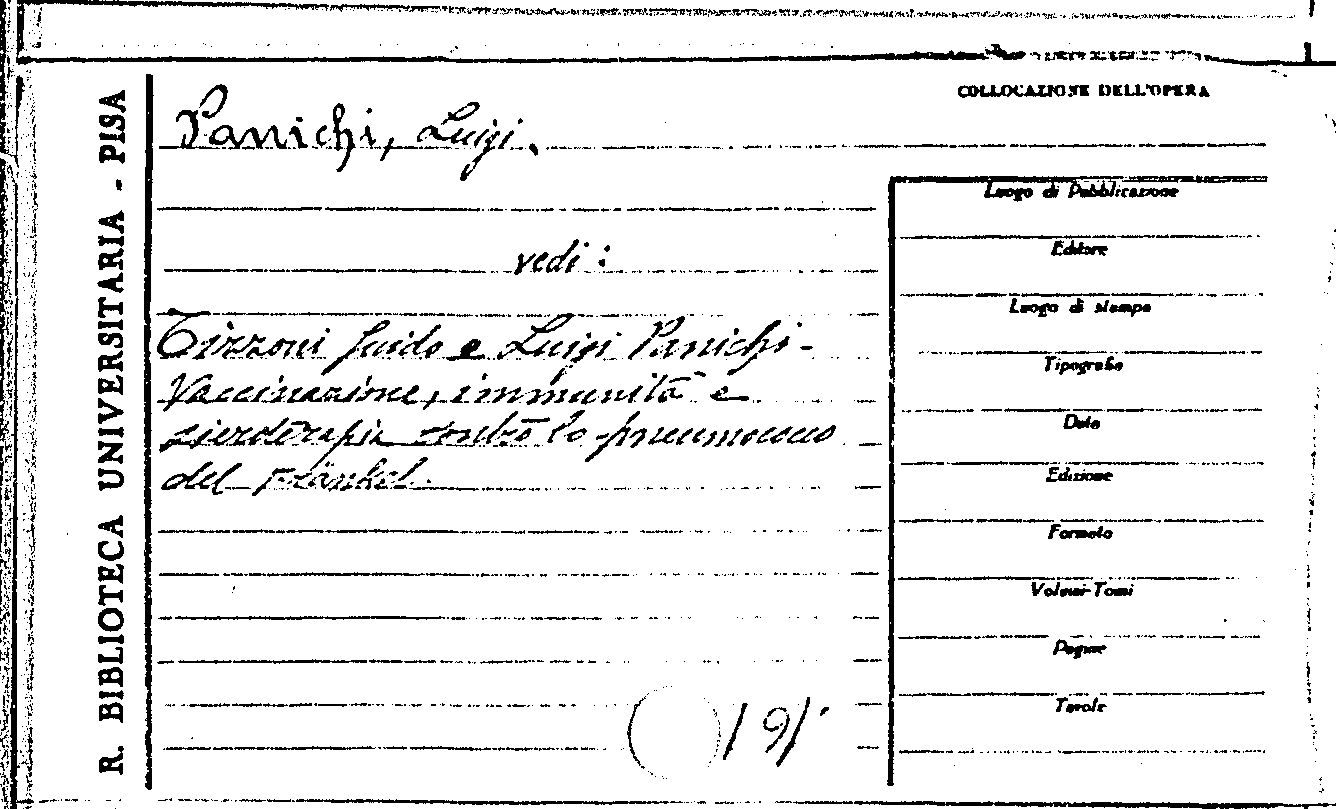 R. BIBLIOTECA UNIVERSITARIA - PISA
COLLOCAZIONE DELL'OPERA
Panichi, Luigi.
vedi:
Tizzoni Guido e Luigi Panichi -
Vaccinazione, immunità e
sieroterapia contro lo pneumococco
del Fränkel.
191
Luogo di Pubblicazione
Editore
Luogo di stampa
Tipografia
Data
Edizione
Formato
Volumi-Tomi
Pagine
Tavole